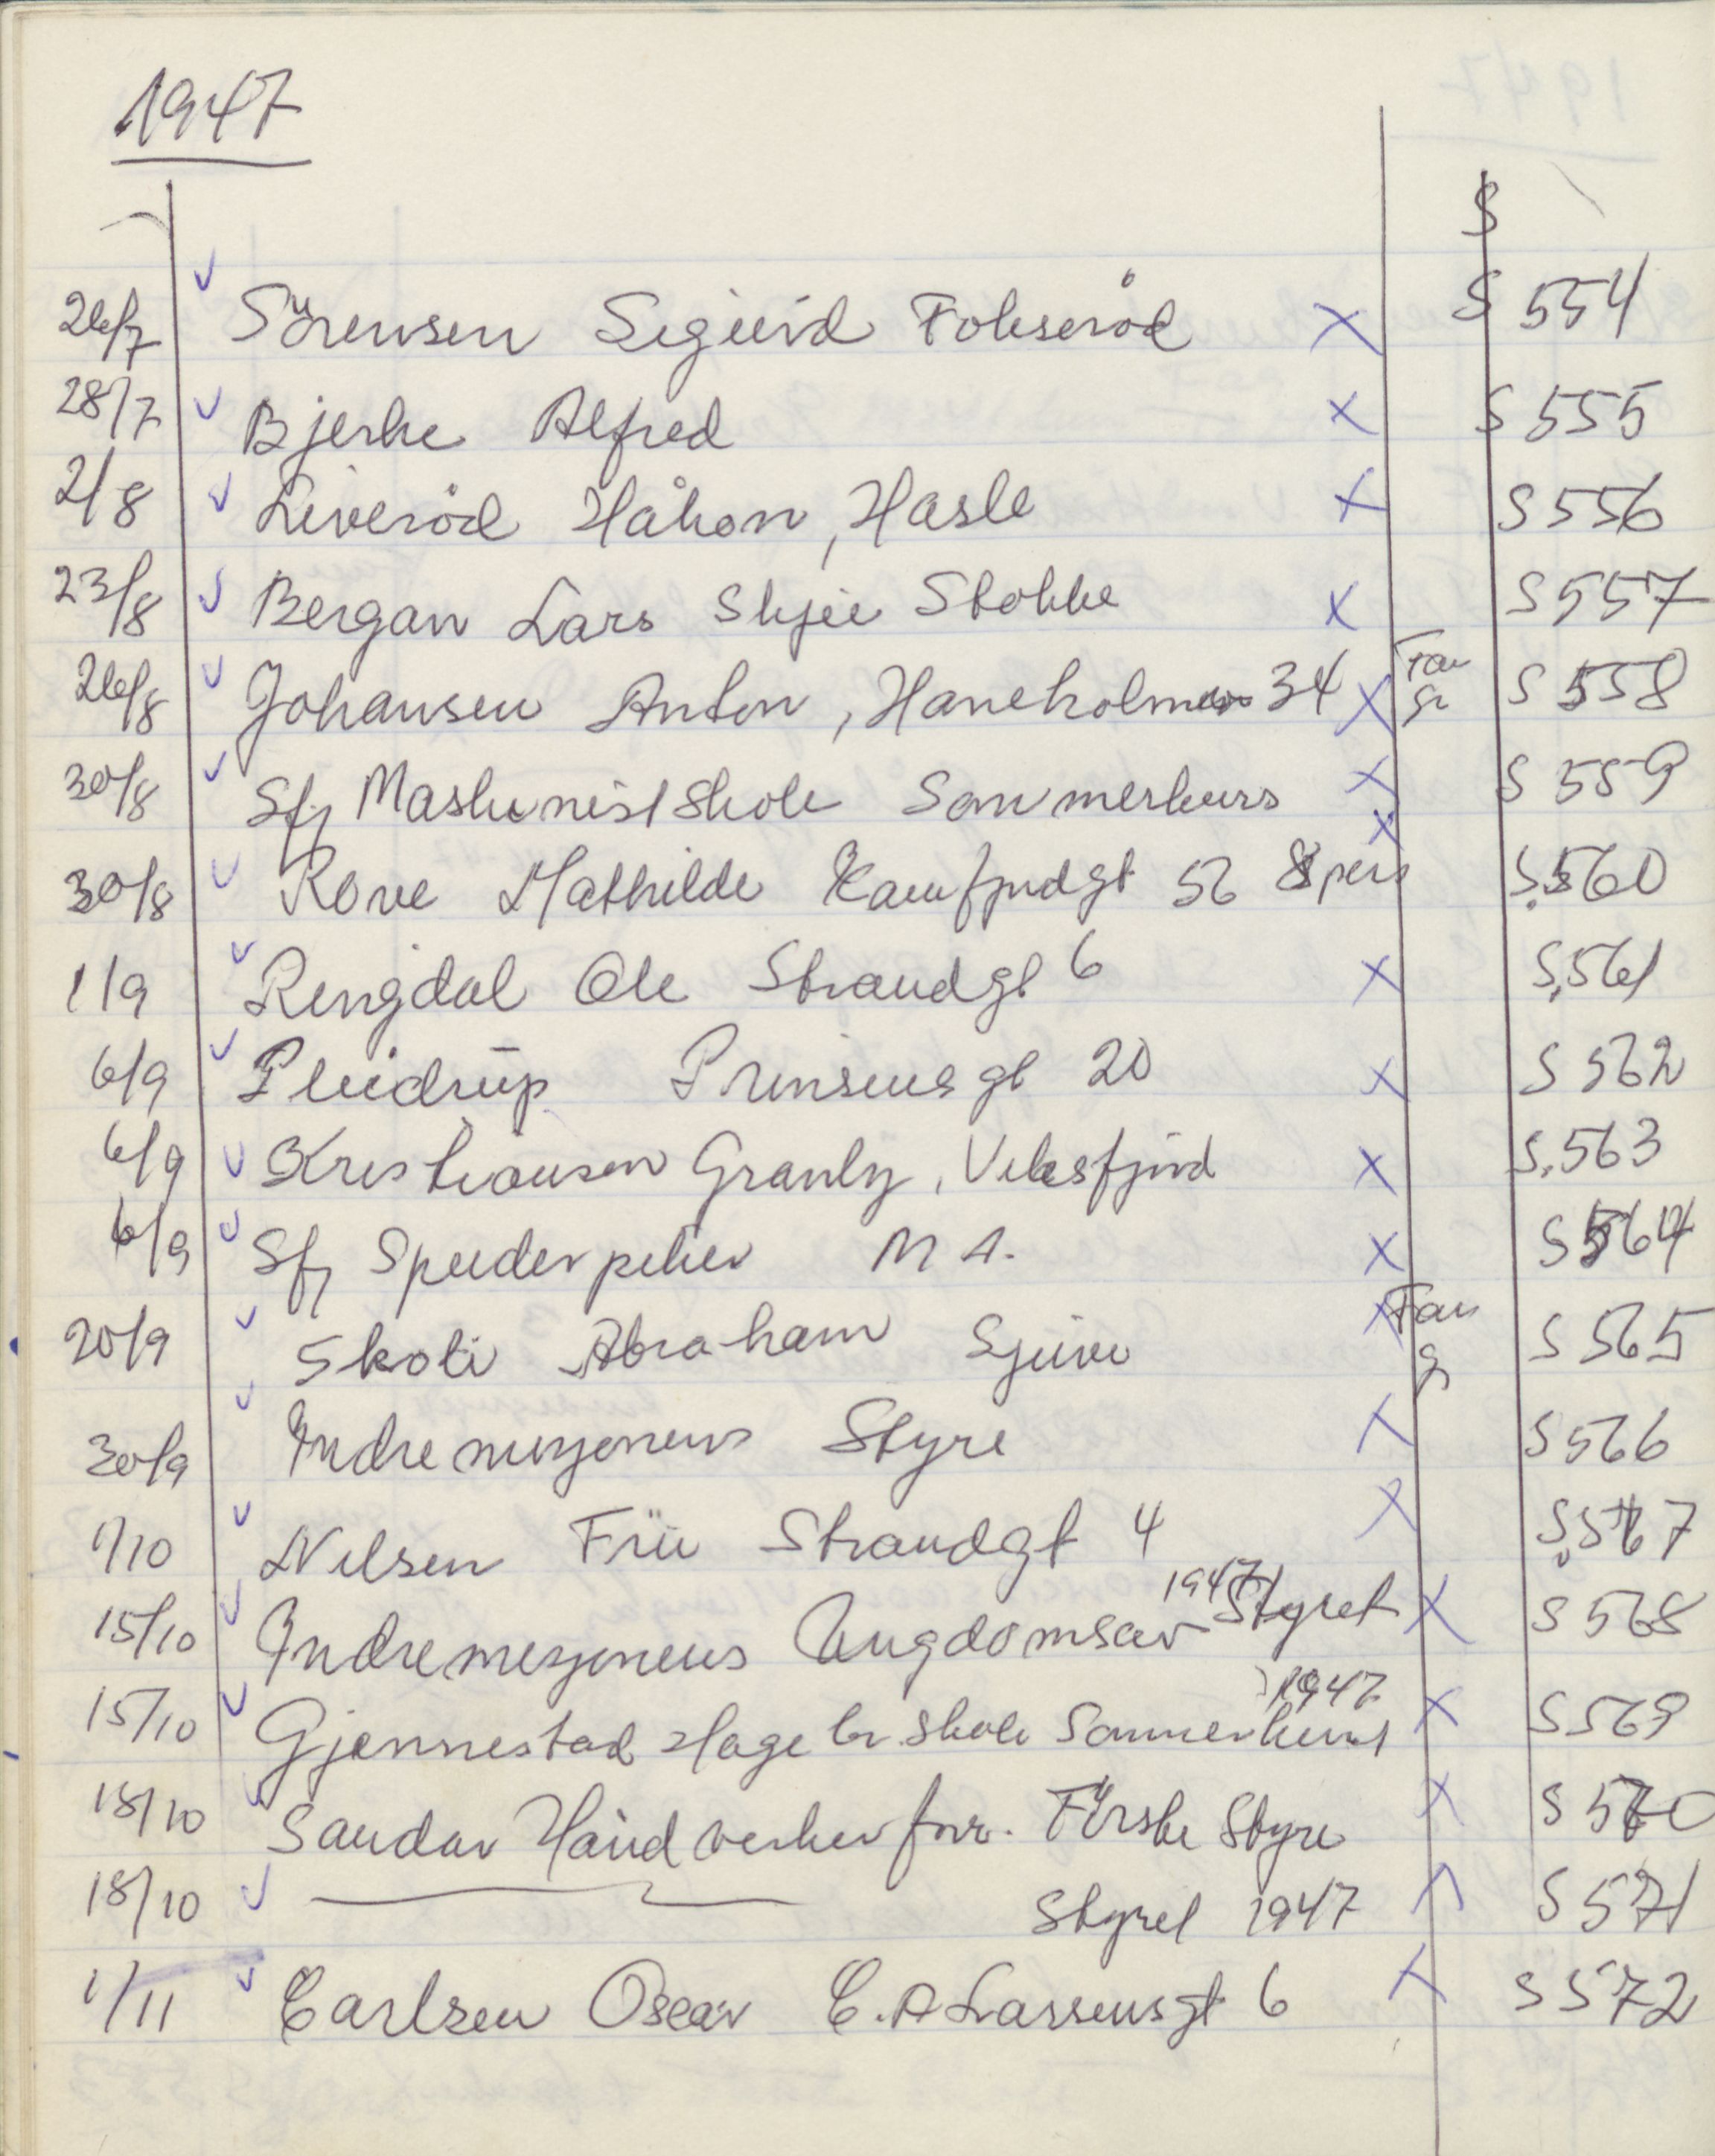 1947
S
26/7 Sörensen Sigurd Fokseröd X S 554
28/7 Bjerke Alfred X S 555
2/8 Liveröd Håkon, Hasle X S 556
23/8 Bergan Lars Skjee Stokke X S 557
26/8 Johansen Anton, Haneholmen 34 X Fam gr S 558
30/8 Sfj Maskinistskole Sommerkurs X S 559
30/8 Rove Mathilde Kamfjordgt 56 8 pers X S. 560
1/9 Ringdal Ole Strandgt 6 X S. 561
6/9 Pleidrup Prinsensgt 20 X S 562
6/9 Kristiansen Granly, Vikesfjord X S. 563
6/9 Sfj Speiderpiker M A. X S 564
20/9 Skoli Abraham X Fam g S 565
30/9 Indremisjonens Styre X S 566
1/10 Nilsen Fru Strandgt 4 X S. 567
15/10 Indremisjonens Ungdomsav Styret 1947 X S 568
15/10 Gjennestad Hagebr. skole Sommerkurs 1947 X S 569
18/10 Sandar Håndverker for. Första Styre X S 570
18/10 — Styret 1947 X S 571
1/11 Carlsen Oscar C. A Larsensgt 6 X S 572